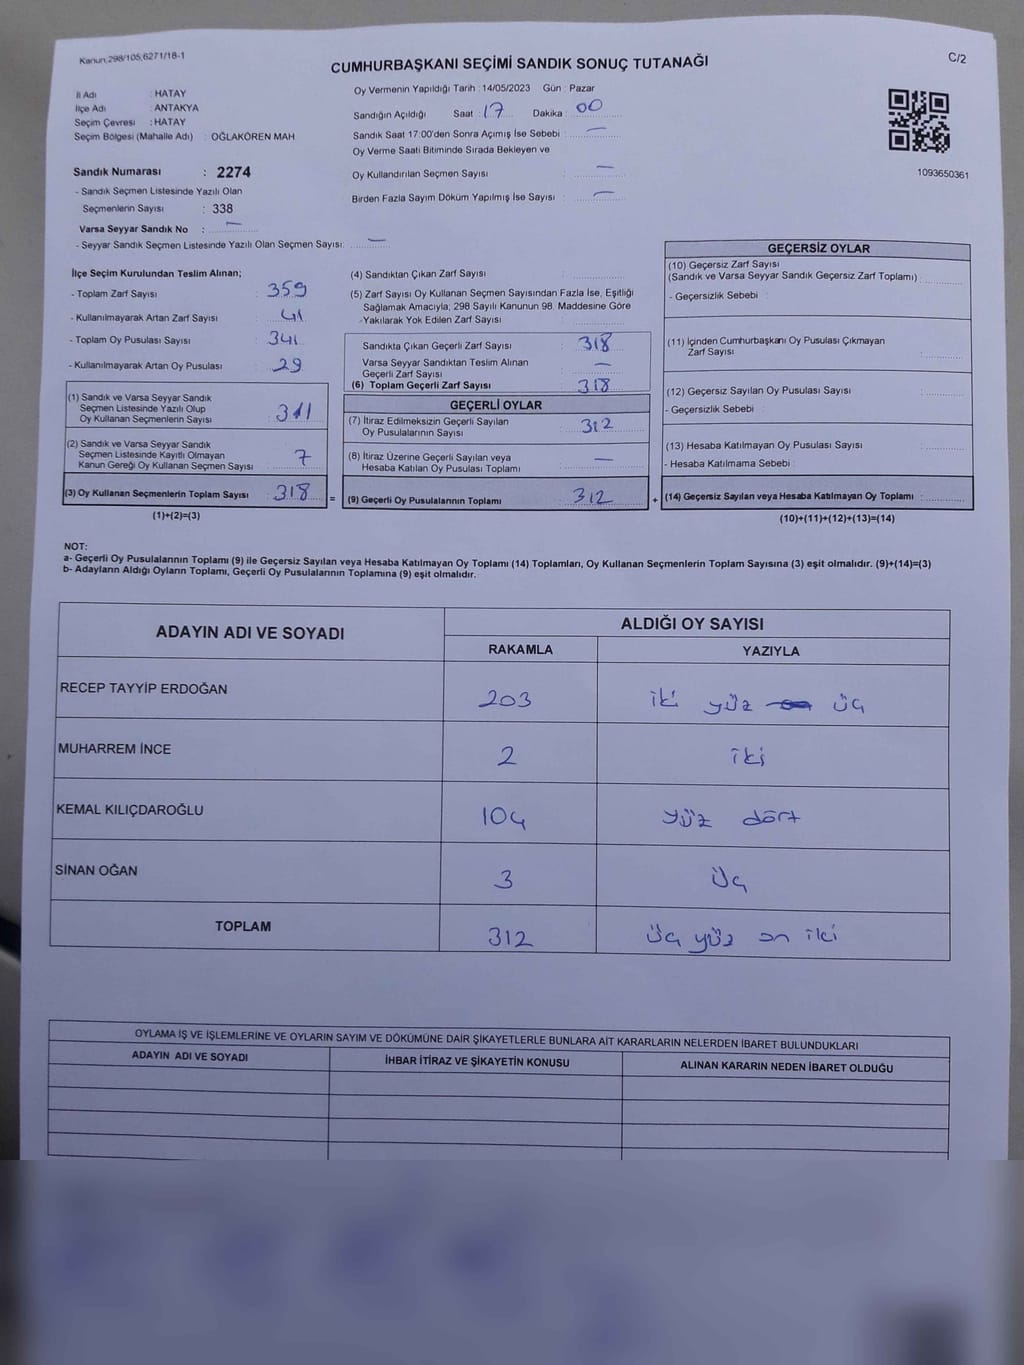 Kanun,298/105,6271/18-1
C/2
CUMHURBAŞKANI SEÇİMİ SANDIK SONUÇ TUTANAĞI
İl Adı : HATAY
İlçe Adı : ANTAKYA
Seçim Çevresi : HATAY
Seçim Bölgesi (Mahalle Adı) : OĞLAKÖREN MAH
Sandık Numarası : 2274
- Sandık Seçmen Listesinde Yazılı Olan
Seçmenlerin Sayısı : 338
Varsa Seyyar Sandık No : —
- Seyyar Sandık Seçmen Listesinde Yazılı Olan Seçmen Sayısı: —
Oy Vermenin Yapıldığı Tarih : 14/05/2023 Gün : Pazar
Sandığın Açıldığı Saat : 17 Dakika : 00
Sandık Saat 17:00'den Sonra Açımış İse Sebebi : —
Oy Verme Saati Bitiminde Sırada Bekleyen ve
Oy Kullandırılan Seçmen Sayısı : —
Birden Fazla Sayım Döküm Yapılmış İse Sayısı : —
1093650361
İlçe Seçim Kurulundan Teslim Alınan;
- Toplam Zarf Sayısı : 359
- Kullanılmayarak Artan Zarf Sayısı : 41
- Toplam Oy Pusulası Sayısı : 341
- Kullanılmayarak Artan Oy Pusulası : 29
(1) Sandık ve Varsa Seyyar Sandık
Seçmen Listesinde Yazılı Olup
Oy Kullanan Seçmenlerin Sayısı : 311
(2) Sandık ve Varsa Seyyar Sandık
Seçmen Listesinde Kayıtlı Olmayan
Kanun Gereği Oy Kullanan Seçmen Sayısı : 7
(3) Oy Kullanan Seçmenlerin Toplam Sayısı : 318 =
(1)+(2)=(3)
(4) Sandıktan Çıkan Zarf Sayısı :
(5) Zarf Sayısı Oy Kullanan Seçmen Sayısından Fazla İse, Eşitliği
Sağlamak Amacıyla, 298 Sayılı Kanunun 98. Maddesine Göre
Yakılarak Yok Edilen Zarf Sayısı :
Sandıkta Çıkan Geçerli Zarf Sayısı : 318
Varsa Seyyar Sandıktan Teslim Alınan
Geçerli Zarf Sayısı : —
(6) Toplam Geçerli Zarf Sayısı : 318
GEÇERLİ OYLAR
(7) İtiraz Edilmeksizin Geçerli Sayılan
Oy Pusulalarının Sayısı : 312
(8) İtiraz Üzerine Geçerli Sayılan veya
Hesaba Katılan Oy Pusulası Toplamı : —
(9) Geçerli Oy Pusulalarının Toplamı : 312 +
GEÇERSİZ OYLAR
(10) Geçersiz Zarf Sayısı
(Sandık ve Varsa Seyyar Sandık Geçersiz Zarf Toplamı) :
- Geçersizlik Sebebi :
(11) İçinden Cumhurbaşkanı Oy Pusulası Çıkmayan
Zarf Sayısı :
(12) Geçersiz Sayılan Oy Pusulası Sayısı :
- Geçersizlik Sebebi :
(13) Hesaba Katılmayan Oy Pusulası Sayısı :
- Hesaba Katılmama Sebebi :
(14) Geçersiz Sayılan veya Hesaba Katılmayan Oy Toplamı :
(10)+(11)+(12)+(13)=(14)
NOT:
a- Geçerli Oy Pusulalarının Toplamı (9) ile Geçersiz Sayılan veya Hesaba Katılmayan Oy Toplamı (14) Toplamları, Oy Kullanan Seçmenlerin Toplam Sayısına (3) eşit olmalıdır. (9)+(14)=(3)
b- Adayların Aldığı Oyların Toplamı, Geçerli Oy Pusulalarının Toplamına (9) eşit olmalıdır.
ADAYIN ADI VE SOYADI
ALDIĞI OY SAYISI
RAKAMLA YAZIYLA
RECEP TAYYİP ERDOĞAN 203 iki yüz üç
MUHARREM İNCE 2 iki
KEMAL KILIÇDAROĞLU 104 yüz dört
SİNAN OĞAN 3 üç
TOPLAM 312 üç yüz on iki
OYLAMA İŞ VE İŞLEMLERİNE VE OYLARIN SAYIM VE DÖKÜMÜNE DAİR ŞİKAYETLERLE BUNLARA AİT KARARLARIN NELERDEN İBARET BULUNDUKLARI
ADAYIN ADI VE SOYADI İHBAR İTİRAZ VE ŞİKAYETİN KONUSU ALINAN KARARIN NEDEN İBARET OLDUĞU